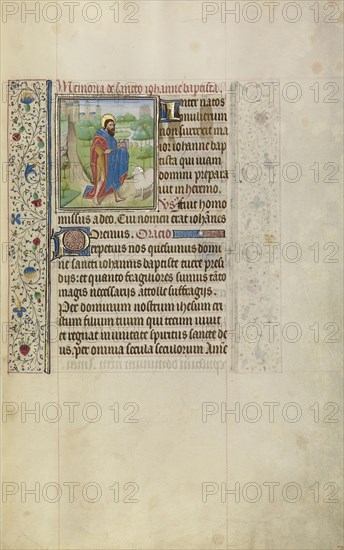 Memoria de sancto iohanne baptista.
Inter natos
mulierum
non surrexit ma
ior iohanne bap
tista qui uiam
domini prepara
uit in heremo.
Vs fuit homo
missus a deo. Cui nomen erat iohãnes
Oremus. Oracio
Perpetuis nos quesumus domi
ne sancti iohannis baptiste tuere presi
dijs: et quanto fragiliores sumus tãto
magis necessarijs attolle suffragijs.
Per dominum nostrum ihesum cri
stum filium tuum qui tecum uiuit
et regnat in unitate spiritus sancte de
us. per omnia secula seculorum Ame
PHOTO 12
PHOTO 12
PHOTO 12
PHOTO 12
PHOTO 12
PHOTO 12
PHOTO 12
PHOTO 12
PHOTO 12
PHOTO 12
PHOTO 12
PHOTO 12